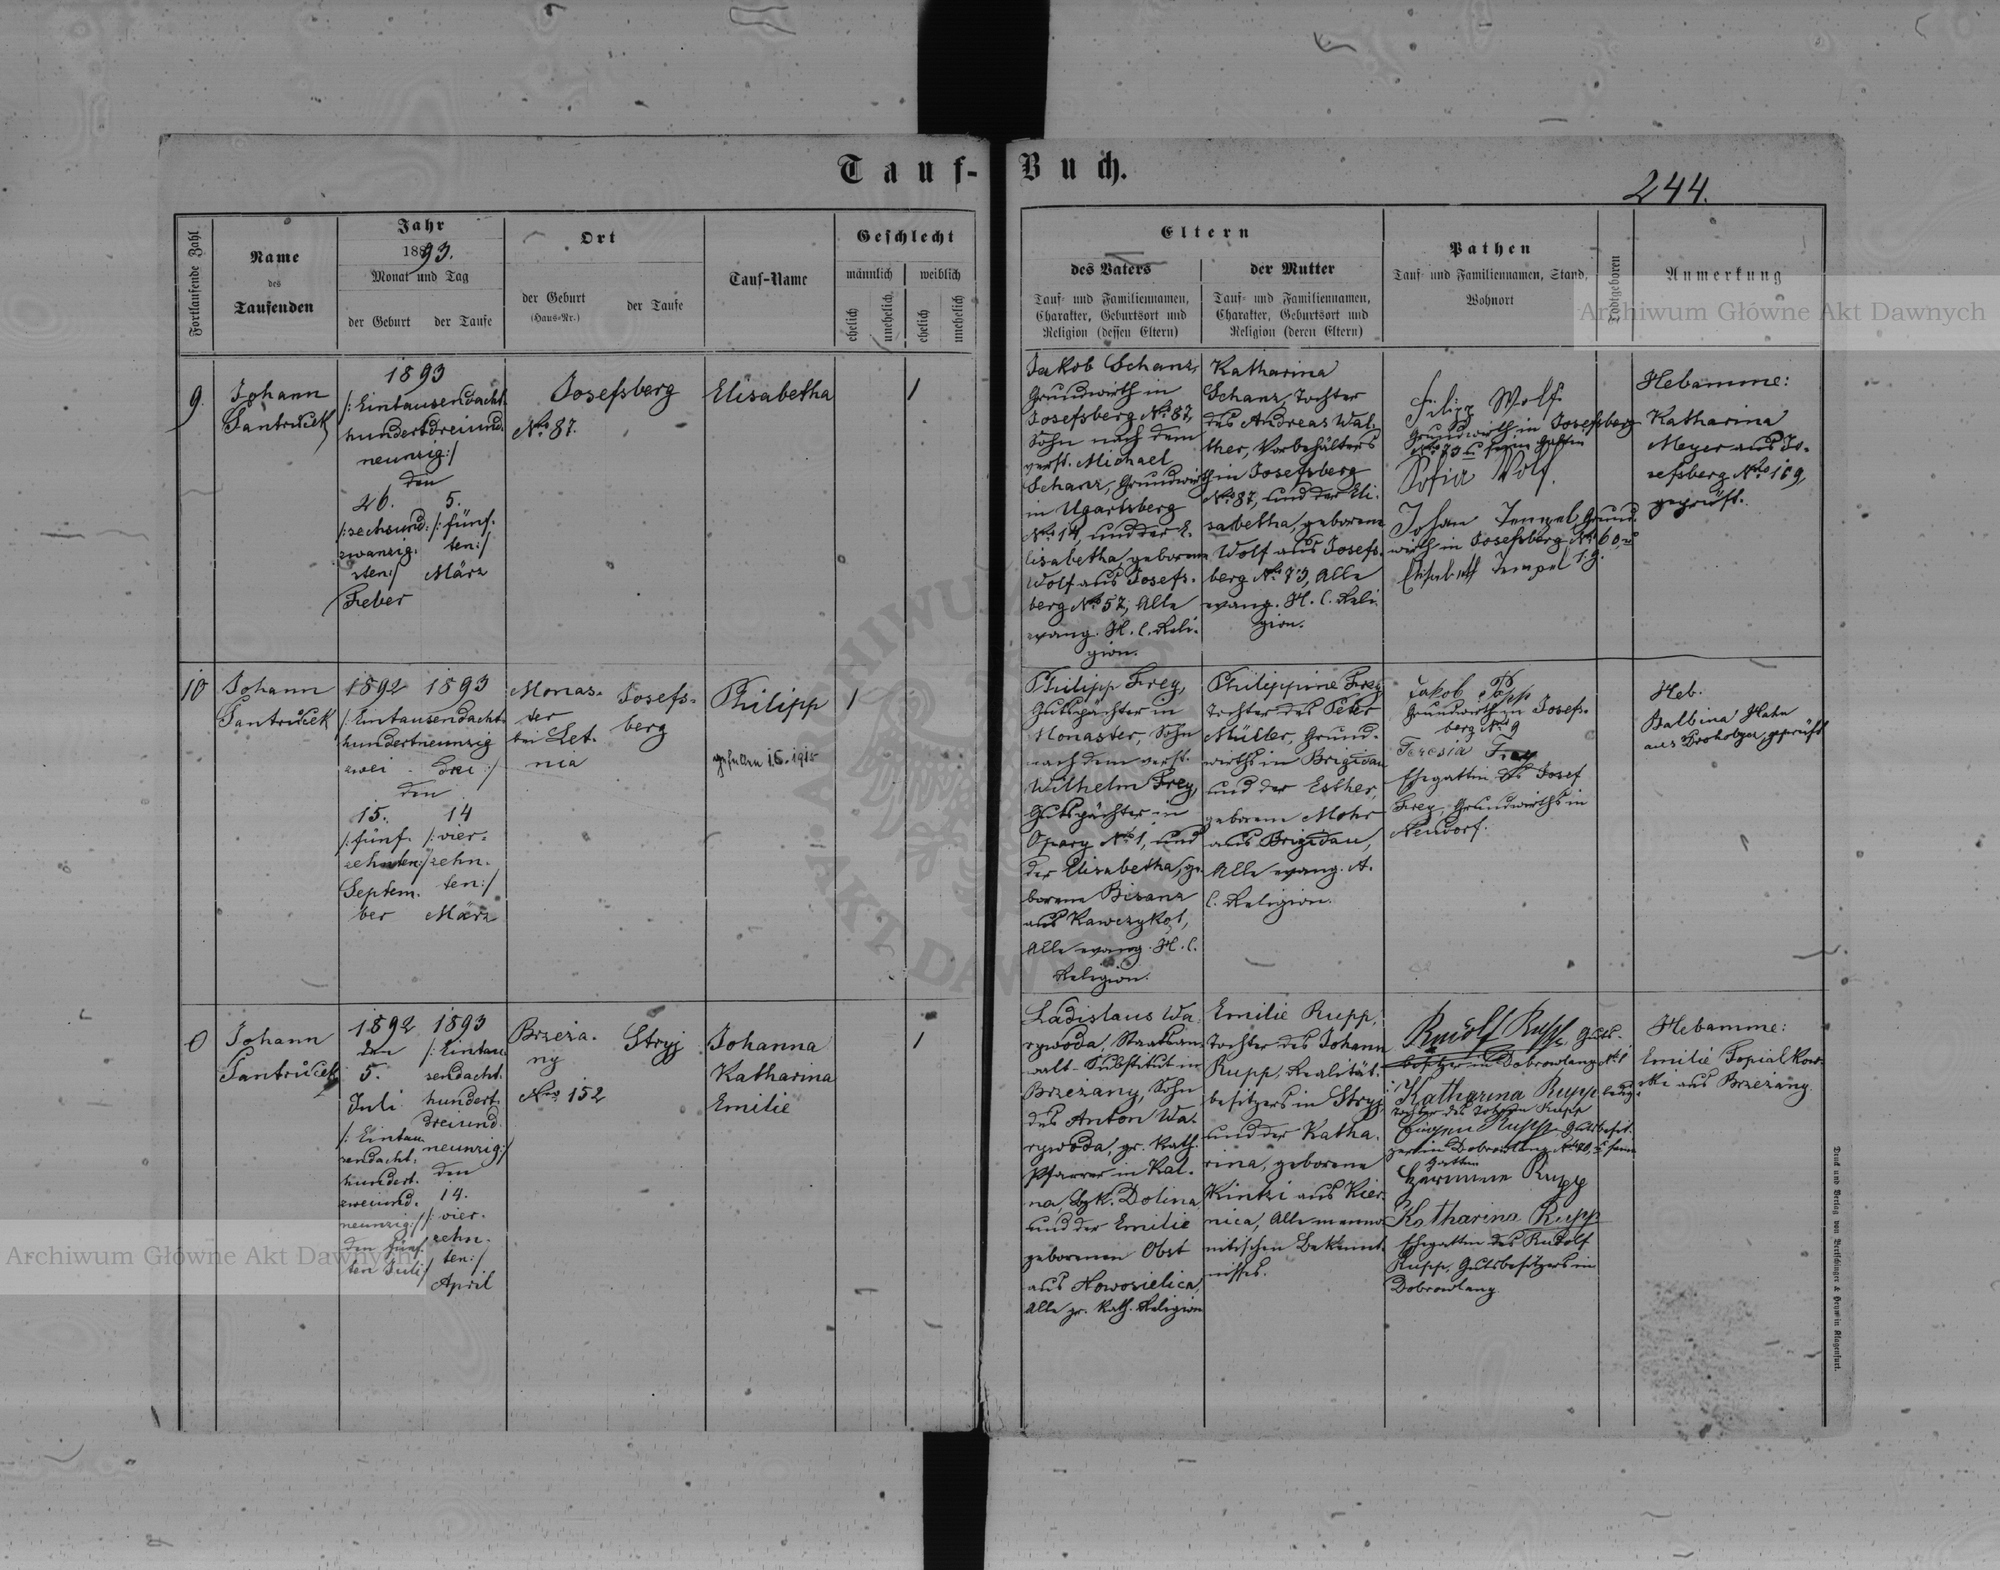 Tauf-Buch.
244.
Fortlaufende Zahl
Name
des
Taufenden
Jahr
1893.
Monat und Tag
der Geburt
der Taufe
Ort
der Geburt
(Haus-Nr.)
der Taufe
Tauf-Name
Geschlecht
männlich
weiblich
ehelich
unehelich
ehelich
unehelich
Eltern
des Vaters
Tauf- und Familiennamen,
Charakter, Geburtsort und
Religion (dessen Eltern)
der Mutter
Tauf- und Familiennamen,
Charakter, Geburtsort und
Religion (deren Eltern)
Pathen
Tauf- und Familiennamen, Stand,
Wohnort
Todtgeboren
Anmerkung
9.
Johann
Santruček
1893
/: Eintausendacht
hundertdreiund
neunzig :/
den
26.
/: sechsund
zwanzig
sten :/
Feber
5.
/: fünf.
ten :/
März
Josefsberg
No 87.
Elisabetha
1
Jakob Schanz,
Grundwirth in
Josefsberg No 87,
Sohn nach dem
verst. Michael
Schanz, Grundwirth
in Ugartsberg
No 14, und der E-
lisabetha, geborene
Wolf aus Josefs-
berg No 57, Alle
evang. H. C. Reli-
gion.
Katharina
Schanz, Tochter
des Andreas Wal-
ther, Vorbehälters
in Josefsberg
No 87, und der Eli-
sabetha, geborene
Wolf aus Josefs-
berg No 73, Alle
evang. H. C. Reli-
gion.
Filipp Wolf
Grundwirth in Josefsberg
No 73 u. seine Gattin
Sofia Wolf.
Johan Tempel, Grund-
wirth in Josefsberg No 60, u
Elisabeth Tempel
Hebamme:
Katharina
Meyer aus Jo-
sefsberg No 169,
geprüft.
10
Johann
Santruček
1892
1893
/: Eintausendacht
hundertneunzig
zwei
drei :/
den
15.
/: fünf-
zehnten :/
Septem-
ber
14
/: vier-
zehn-
ten :/
März
Monas-
ter
bei Let-
nia
Josefs-
berg
Philipp
gefallen 1915
1
Philipp Frey,
Gutspächter in
Monaster, Sohn
nach dem verst.
Wilhelm Frey,
Gutspächter in
Opary No 1, und
der Elisabetha, ge-
borene Bisanz
aus Kawczykot,
Alle evang. H. C.
Religion.
Philippine Frey
Tochter des Peter
Müller, Grund-
wirths in Brigidau
und der Esther,
geborene Mohr
aus Brigidau,
Alle evang. A.
C. Religion.
Jakob Popp
Grundwirth in Josefs-
berg No 9
Teresia Frey
Ehegattin des Josef
Frey, Grundwirths in
Neudorf.
Heb.
Balbina Hahn
aus Drohobycz, geprüft
0
Johann
Santruček
1892
den
5.
Juli
/: Eintau
sendacht.
hundert.
zweiund.
neunzig :/
den fünf.
ten Juli :/
1893
/: Eintau
sendacht.
hundert.
dreiund.
neunzig :/
den
14.
/: vier-
zehn.
ten :/
April
Brzeża-
ny
No 152
Stryj
Johanna
Katharina
Emilie
1
Ladislaus Wa-
rywoda, Staatsan-
walt-Substitut in
Brzeżany, Sohn
des Anton Wa-
rywoda, gr. kath.
Pfarrer in Kal-
na, Bzk. Dolina
und der Emilie
geborenen Obst
aus Nowosielica,
Alle gr. kath. Religion
Emilie Rupp,
Tochter des Johann
Rupp, Realitäts-
besitzers in Stryj
und der Katha-
rina, geborene
Kintzi aus Kier-
nica, Alle menno-
nitischen Bekennt-
nisses.
Rudolf Rupp, Guts-
besitzer in Dobrowlany
Katharina Rupp
Tochter des Johann Rupp
Eugen Rupp, Gutsbesit-
zer in Dobrowlany u. seine
Gattin
Hermine Rupp
Katharina Rupp
Ehegattin des Rudolf
Rupp, Gutsbesitzers in
Dobrowlany
Hebamme:
Emilie Topialkow-
ski aus Brzeżany.
Druck und Verlag von Bertschinger & Heyn in Klagenfurt.
Archiwum Główne Akt Dawnych
Archiwum Główne Akt Dawnych